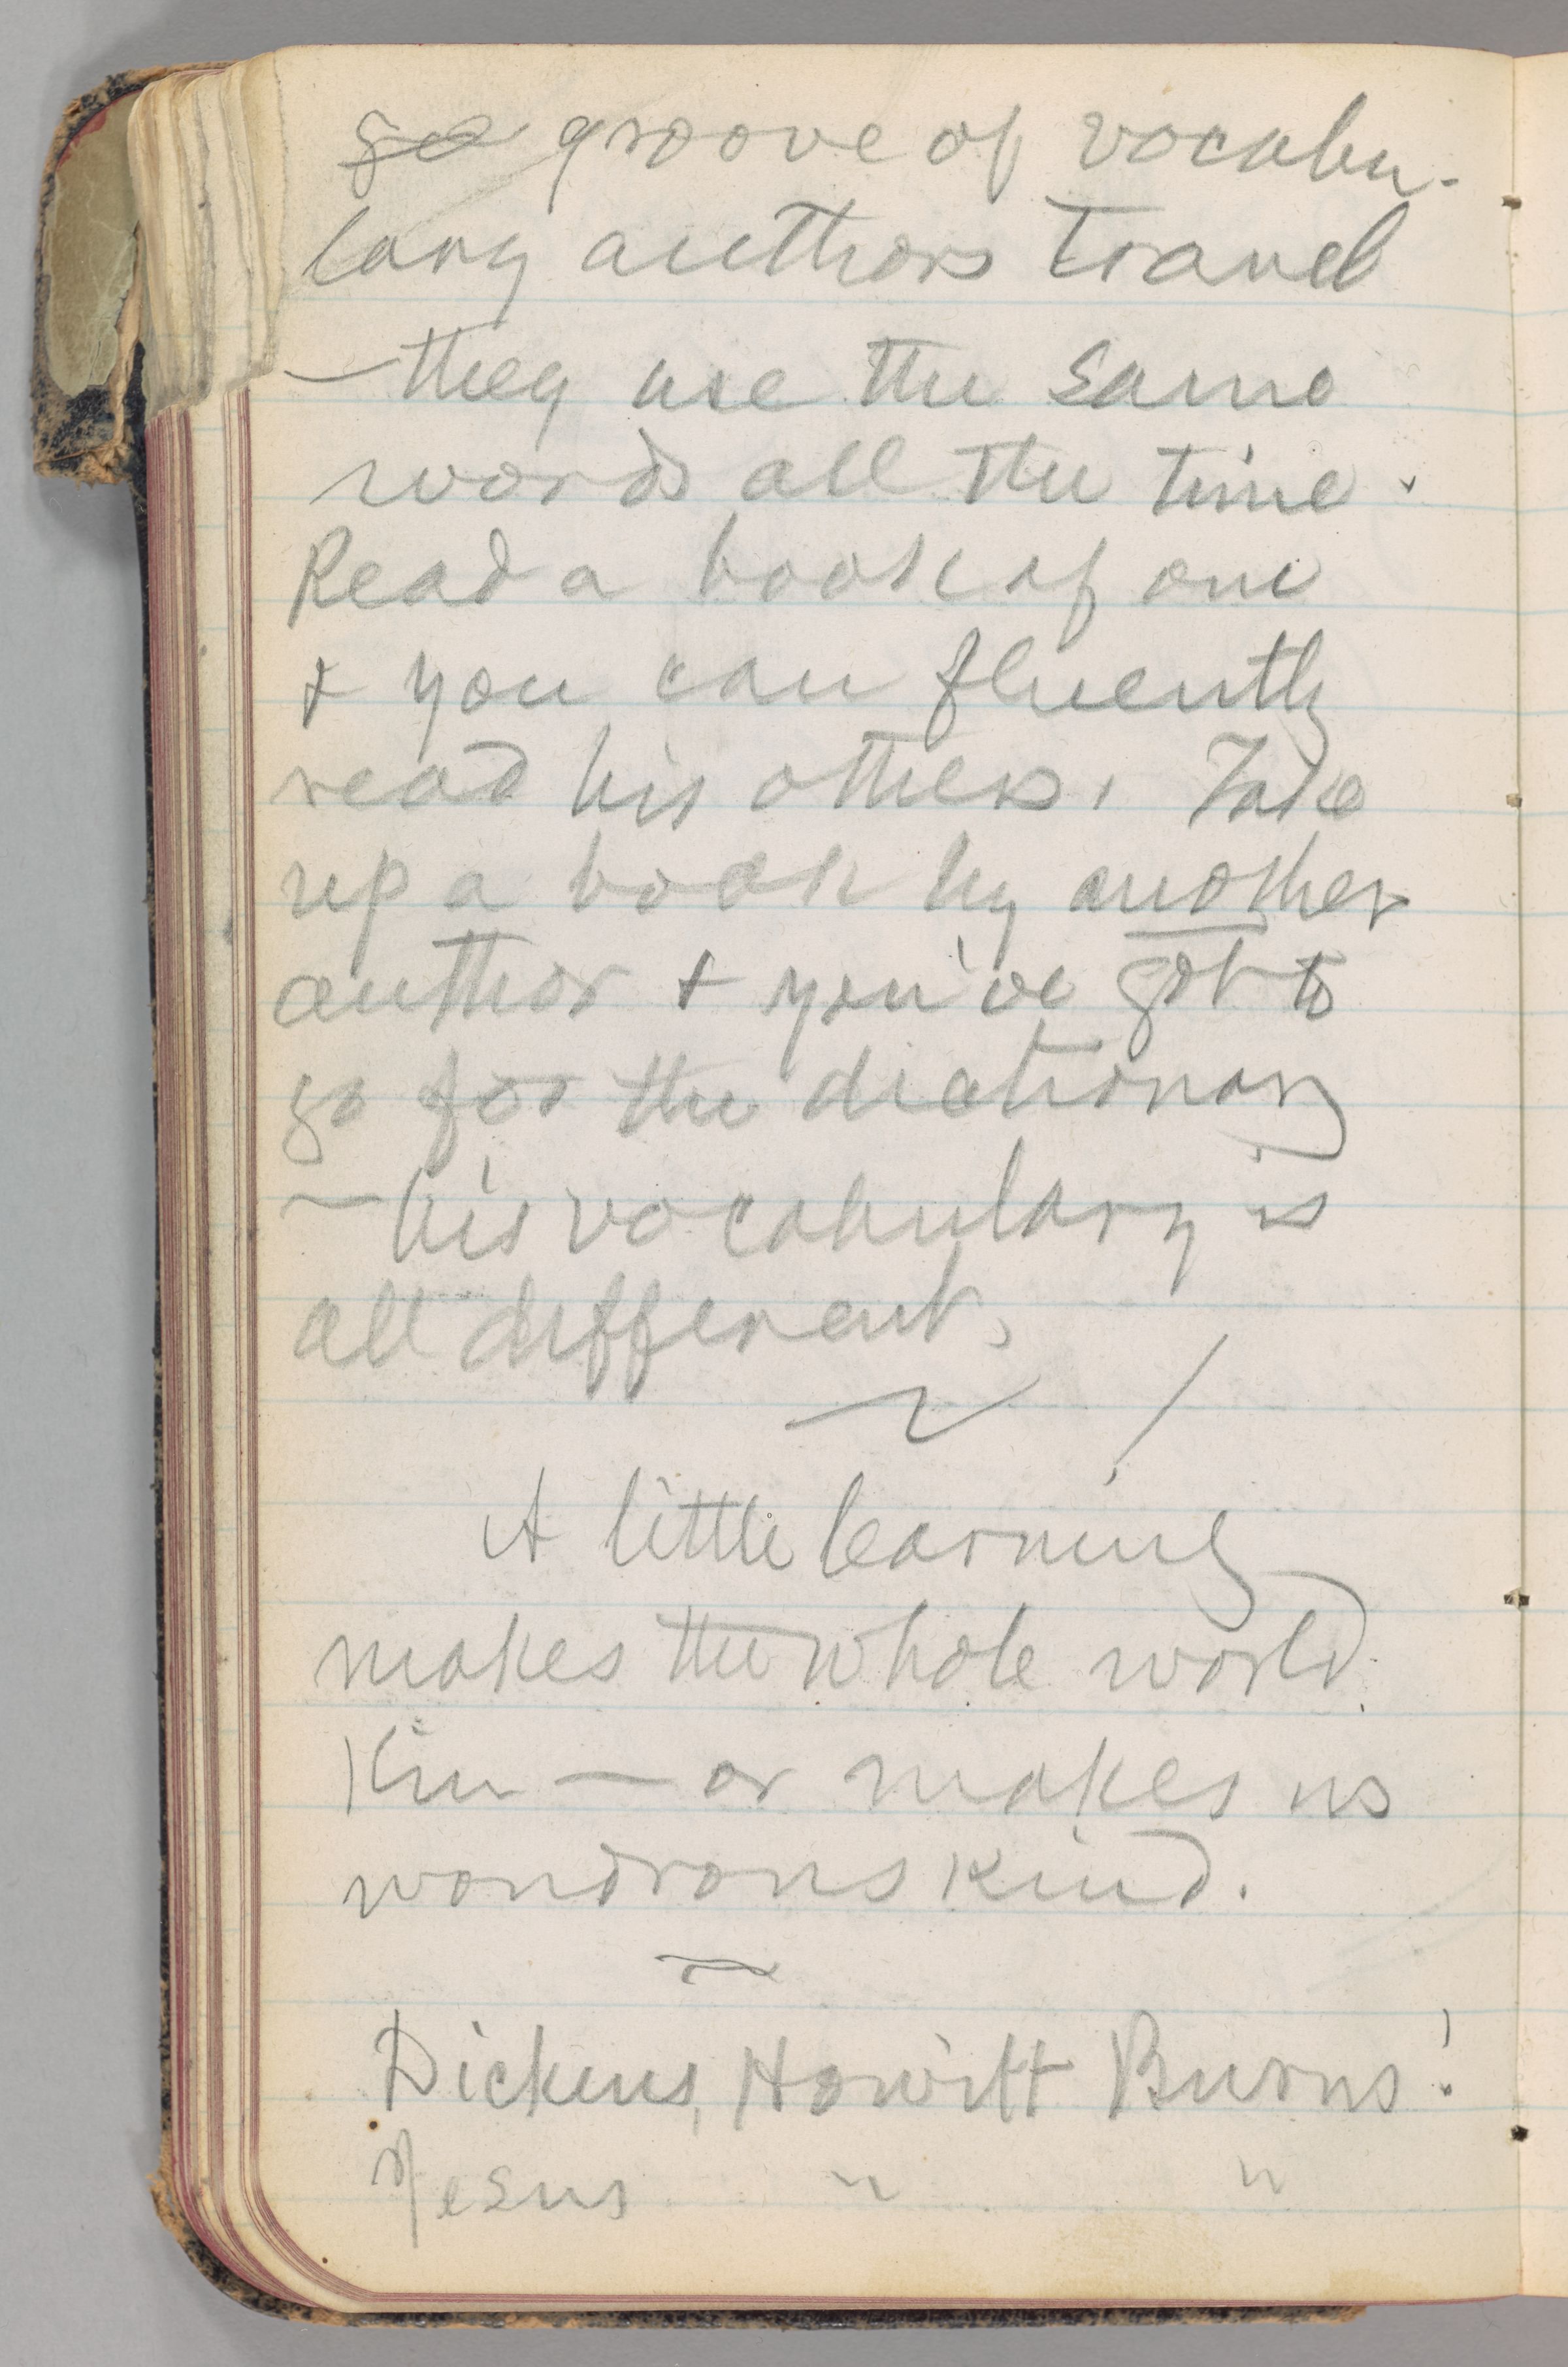 go groove of vocabu-
lary authors travel
— they use the same
words all the time.
Read a book of one
& you can fluently
read his others. Take
up a book by another
author & you've got to
go for the dictionary
— his vocabulary is
all different.
A little learning
makes the whole world
kin — or makes us
wondrous kind.
Dickens, Howitt Burns!
Jesus " "